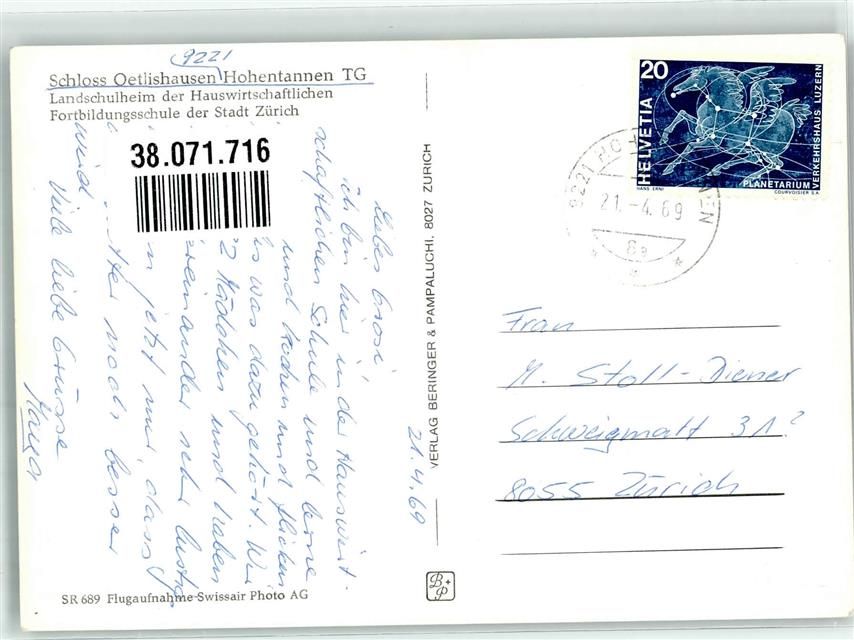 9221
Schloss Oetlishausen Hohentannen TG
Landschulheim der Hauswirtschaftlichen
Fortbildungsschule der Stadt Zürich
38.071.716
21.4.69
Liebes Grosi
ich bin hier in der Hauswirt-
schaftlichen Schule und lerne
und kochen und flicken
was dazu gehört. Wir
Mädchen und haben
sehr lustig
jetzt nur, dass
noch besser
wird
Viele liebe Grüsse
Maya
SR 689 Flugaufnahme Swissair Photo AG
VERLAG BERINGER & PAMPALUCHI, 8027 ZÜRICH
B+P
20
HELVETIA
PLANETARIUM
VERKEHRSHAUS LUZERN
HANS ERNI
COURVOISIER S.A.
9221 HOHENTANNEN
21.-4.69
Frau
M. Stoll-Diener
Schweigmatt 31?
8055 Zürich